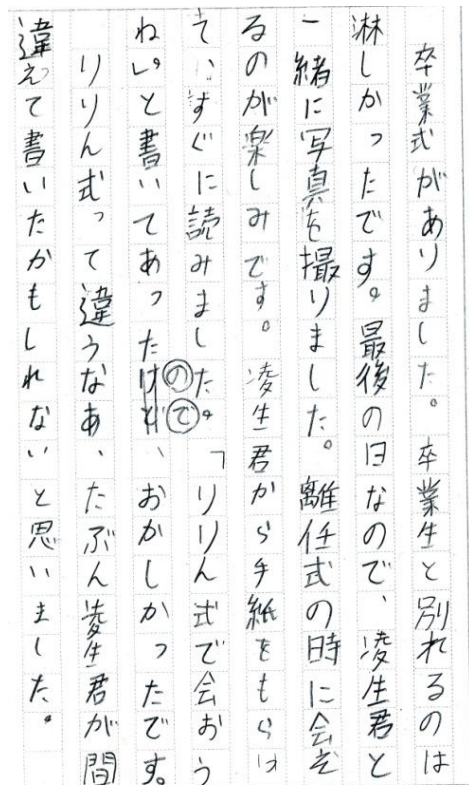 卒業式がありました。卒業生と別れるのは
淋しかったです。最後の日なので、凌生君と
一緒に写真を撮りました。離任式の時に会え
るのが楽しみです。凌生君から手紙をもらっ
て、すぐに読みました。「りりん式で会おう
ね」と書いてあったけどので、おかしかったです。
りりん式って違うなあ、たぶん凌生君が間
違えて書いたかもしれないと思いました。